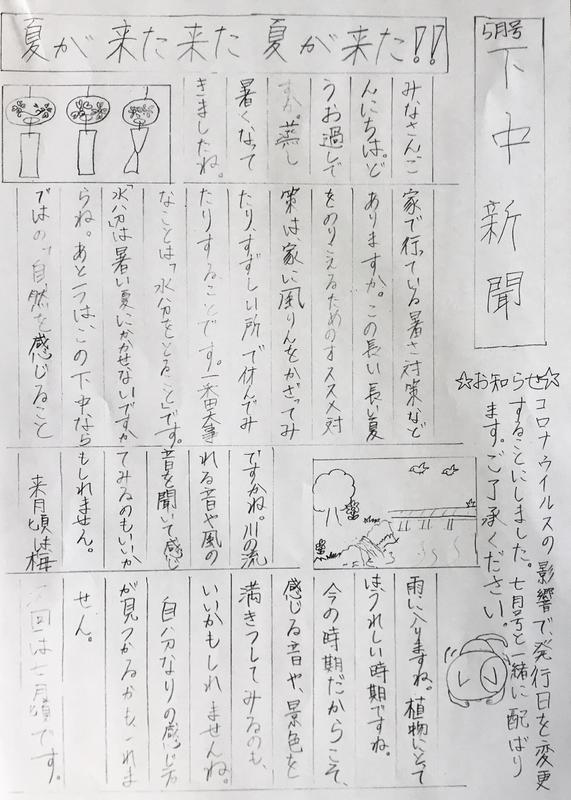 5月号
下中新聞
☆お知らせ☆
コロナウイルスの影響で発行日を変更
することにしました。七月号と一緒に配ばり
ます。ご了承ください。
夏が来た来た夏が来た!!
みなさんこ
んにちは。ど
うお過しで
すか。蒸し
暑くなって
きましたね。
家で行っている暑さ対策など
ありますか。この長い長い夏
をのりこえるためのオススメ対
策は、家に風りんをかざってみ
たり、すずしい所で休んでみ
たりすることです。一番大事
なことは「水分をとること」です。
「水分」は暑い夏にかかせないですか
らね。あと一つは、この下中なら
ではの、「自然を感じること
ですかね。川の流
れる音や風の
音を聞いて感じ
てみるのもいいか
もしれません。
来月頃は梅
雨に入りますね。植物にとって
はうれしい時期ですね。
今の時期だからこそ、
感じる音や、景色を
満きつしてみるのも、
いいかもしれませんね。
自分なりの感じ方
が見つかるかもしれま
せん。
次回は七月頃です。